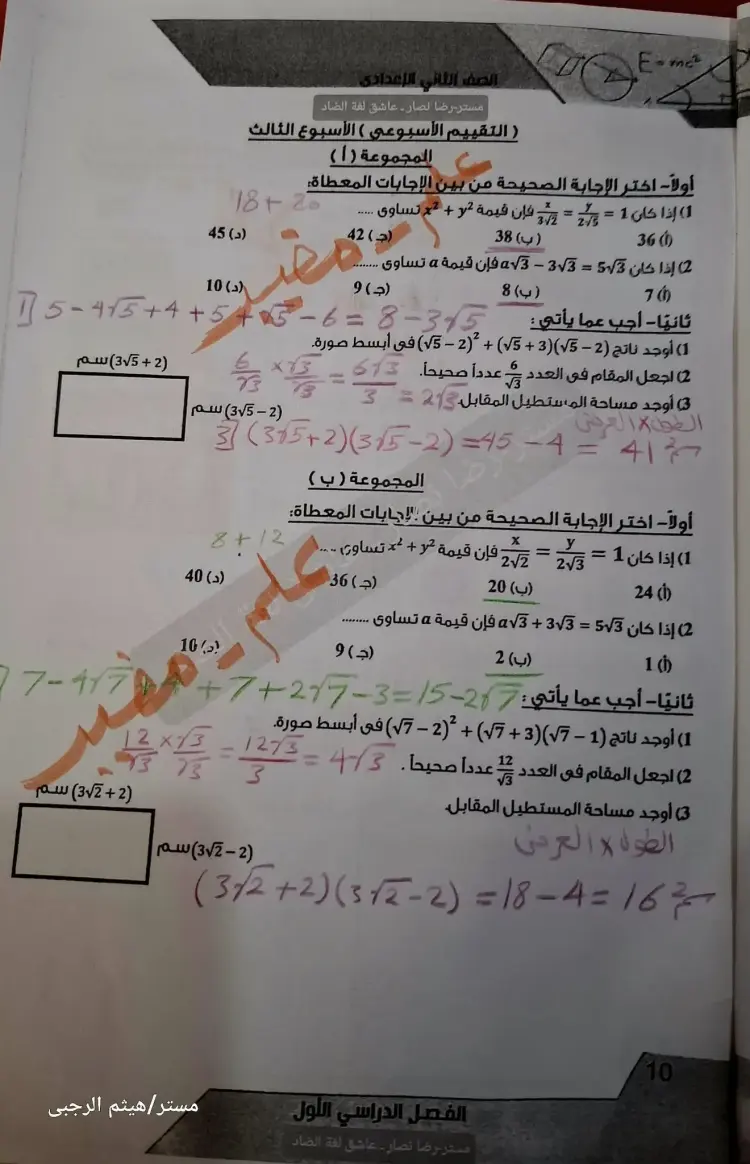 E = mc²
الصف الثاني الإعدادي
مستر-رضا نصار ـ عاشق لغة الضاد
( التقييم الأسبوعي ) الأسبوع الثالث
المجموعة ( أ )
أولاً- اختر الإجابة الصحيحة من بين الإجابات المعطاة:
18 + 20
1) إذا كان x/3√2 = y/2√5 = 1 فإن قيمة x² + y² تساوى .....
(أ) 36 (ب) 38 (جـ) 42 (د) 45
2) إذا كان a√3 − 3√3 = 5√3 فإن قيمة a تساوى .........
(أ) 7 (ب) 8 (جـ) 9 (د) 10
1] 5 − 4√5 + 4 + 5 + √5 − 6 = 8 − 3√5
ثانيًا- أجب عما يأتي :
1) أوجد ناتج (√5 − 2)² + (√5 + 3)(√5 − 2) فى أبسط صورة.
2) اجعل المقام فى العدد 6/√3 عدداً صحيحاً.
6/√3 × √3/√3 = 6√3/3 = 2√3
3) أوجد مساحة المستطيل المقابل.
(3√5 + 2) سم
(3√5 − 2) سم
الطول x العرض
3] (3√5 + 2)(3√5 − 2) = 45 − 4 = 41 سم²
المجموعة ( ب )
أولاً- اختر الإجابة الصحيحة من بين الإجابات المعطاة:
8 + 12
1) إذا كان x/2√2 = y/2√3 = 1 فإن قيمة x² + y² تساوى .....
(أ) 24 (ب) 20 (جـ) 36 (د) 40
2) إذا كان a√3 + 3√3 = 5√3 فإن قيمة a تساوى ........
(أ) 1 (ب) 2 (جـ) 9 (د) 10
7 − 4√7 + 4 + 7 + 2√7 − 3 = 15 − 2√7
ثانيًا- أجب عما يأتي :
1) أوجد ناتج (√7 − 2)² + (√7 + 3)(√7 − 1) فى أبسط صورة.
2) اجعل المقام فى العدد 12/√3 عدداً صحيحاً .
12/√3 × √3/√3 = 12√3/3 = 4√3
3) أوجد مساحة المستطيل المقابل.
(3√2 + 2) سم
(3√2 − 2) سم
الطول x العرض
(3√2 + 2)(3√2 − 2) = 18 − 4 = 16 سم²
علم - مفيد
علم - مفيد
10
الفصل الدراسي الأول
مستر-رضا نصار ـ عاشق لغة الضاد
مستر/هيثم الرجبى